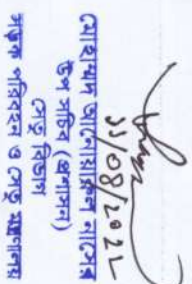 ১১/০৪/২০২২
মোহাম্মদ আনোয়ারুল নাসের
উপ সচিব (প্রশাসন)
সেতু বিভাগ
সড়ক পরিবহন ও সেতু মন্ত্রণালয়